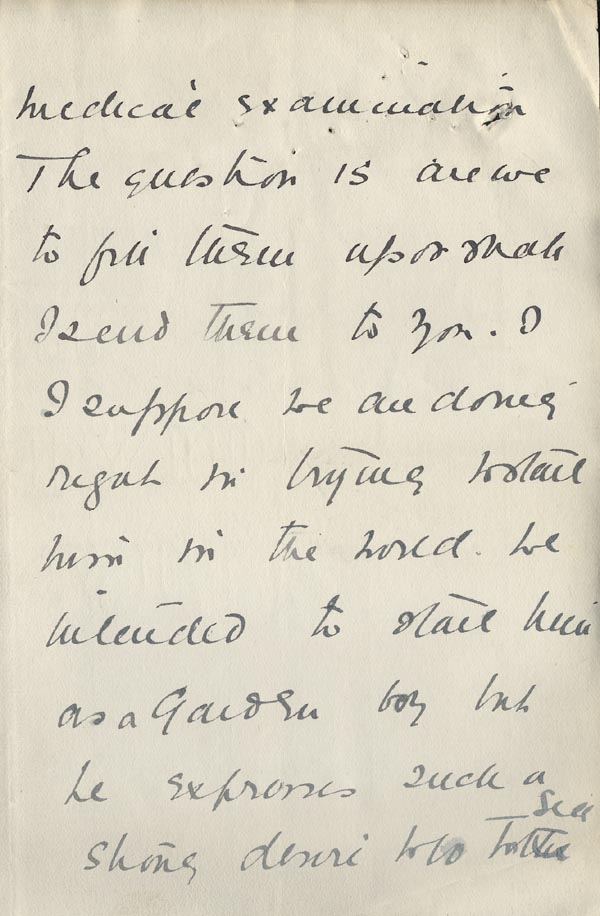 medical examination
The question is are we
to fill them up or shall
I send them to you. I
I suppose we are doing
right in trying to start
him in the world. We
intended to start him
as a Garden boy but
he expresses such a
strong desire to go to the
Sea